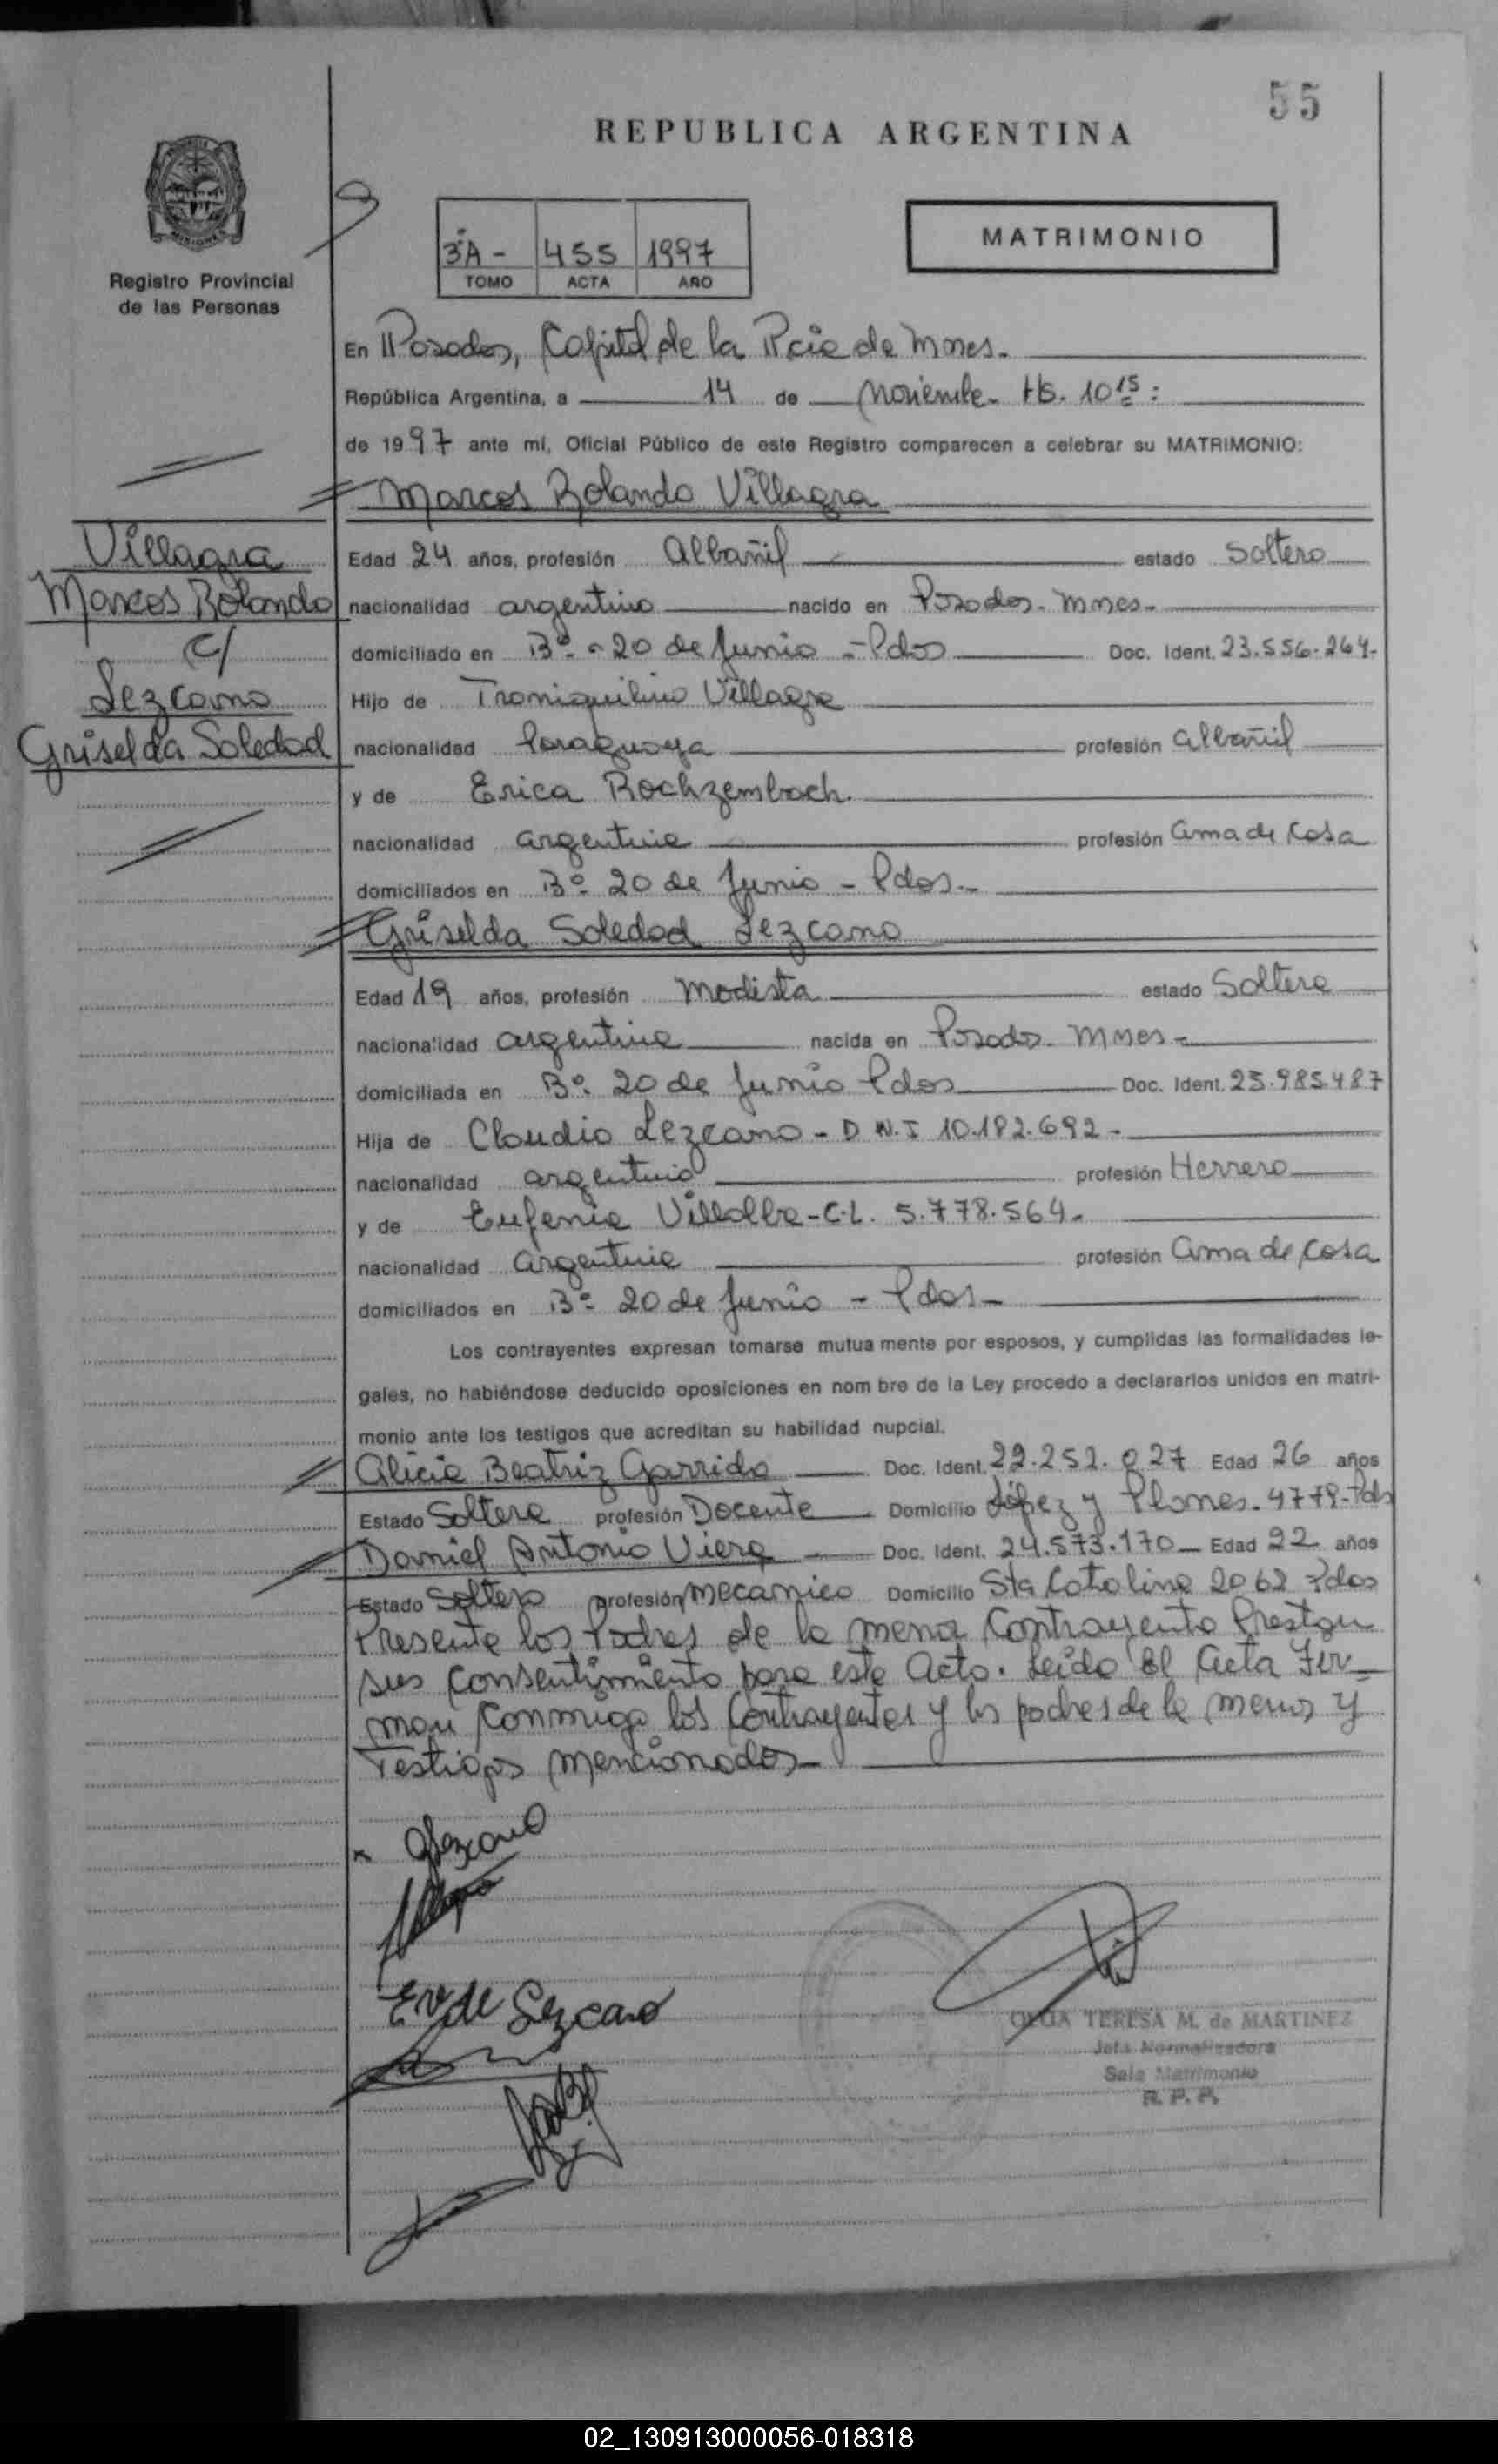 55
REPUBLICA ARGENTINA
MISIONES
Registro Provincial
de las Personas
3ºA - 455 1997
TOMO ACTA AÑO
MATRIMONIO
En Posadas, Capital de la Pcia de Mnes.
República Argentina, a 14 de Noviembre Hs. 10 15:
de 1997 ante mí, Oficial Público de este Registro comparecen a celebrar su MATRIMONIO:
Marcos Rolando Villagra
Villagra
Marcos Rolando
c/
Lezcano
Griselda Soledad
Edad 24 años, profesión Albañil estado Soltero
nacionalidad argentino nacido en Posadas - Mnes -
domiciliado en Bº - 20 de Junio - Pdas Doc. Ident. 23.556.264-
Hijo de Villagra
nacionalidad Paraguaya profesión albañil
y de Erica Rochzembach.
nacionalidad argentina profesión ama de casa
domiciliados en Bº 20 de Junio - Pdas -
Griselda Soledad Lezcano
Edad 19 años, profesión Modista estado Soltera
nacionalidad argentina nacida en Posadas - Mnes -
domiciliada en Bº 20 de Junio Pdas Doc. Ident. 25.985.487
Hija de Claudio Lezcano - D.N.I 10.182.692 -
nacionalidad argentino profesión Herrero
y de Eufenia Villalba - C.L. 5.778.564 -
nacionalidad argentina profesión ama de casa
domiciliados en Bº 20 de Junio - Pdas -
Los contrayentes expresan tomarse mutua mente por esposos, y cumplidas las formalidades le-
gales, no habiéndose deducido oposiciones en nom bre de la Ley procedo a declararlos unidos en matri-
monio ante los testigos que acreditan su habilidad nupcial.
Alicia Beatriz Garrido Doc. Ident. 22.252.027 Edad 26 años
Estado Soltera profesión Docente Domicilio López y Planes - 4779 - Pdas
Daniel Antonio Viera Doc. Ident. 24.573.170 - Edad 22 años
Estado Soltero profesión Mecanico Domicilio Sta Catalina 2062 Pdas
Presente los Padres de la menor Contrayente Prestan
sus consentimiento para este Acto. Leido el Acta Fir-
man conmigo los Contrayentes y los padres de la menor y
Testigos mencionados -
GLezcano
E V de Lezcano
OLGA TERESA M. de MARTINEZ
Jefa Normalizadora
Sala Matrimonio
R. P. P.
02_130913000056-018318